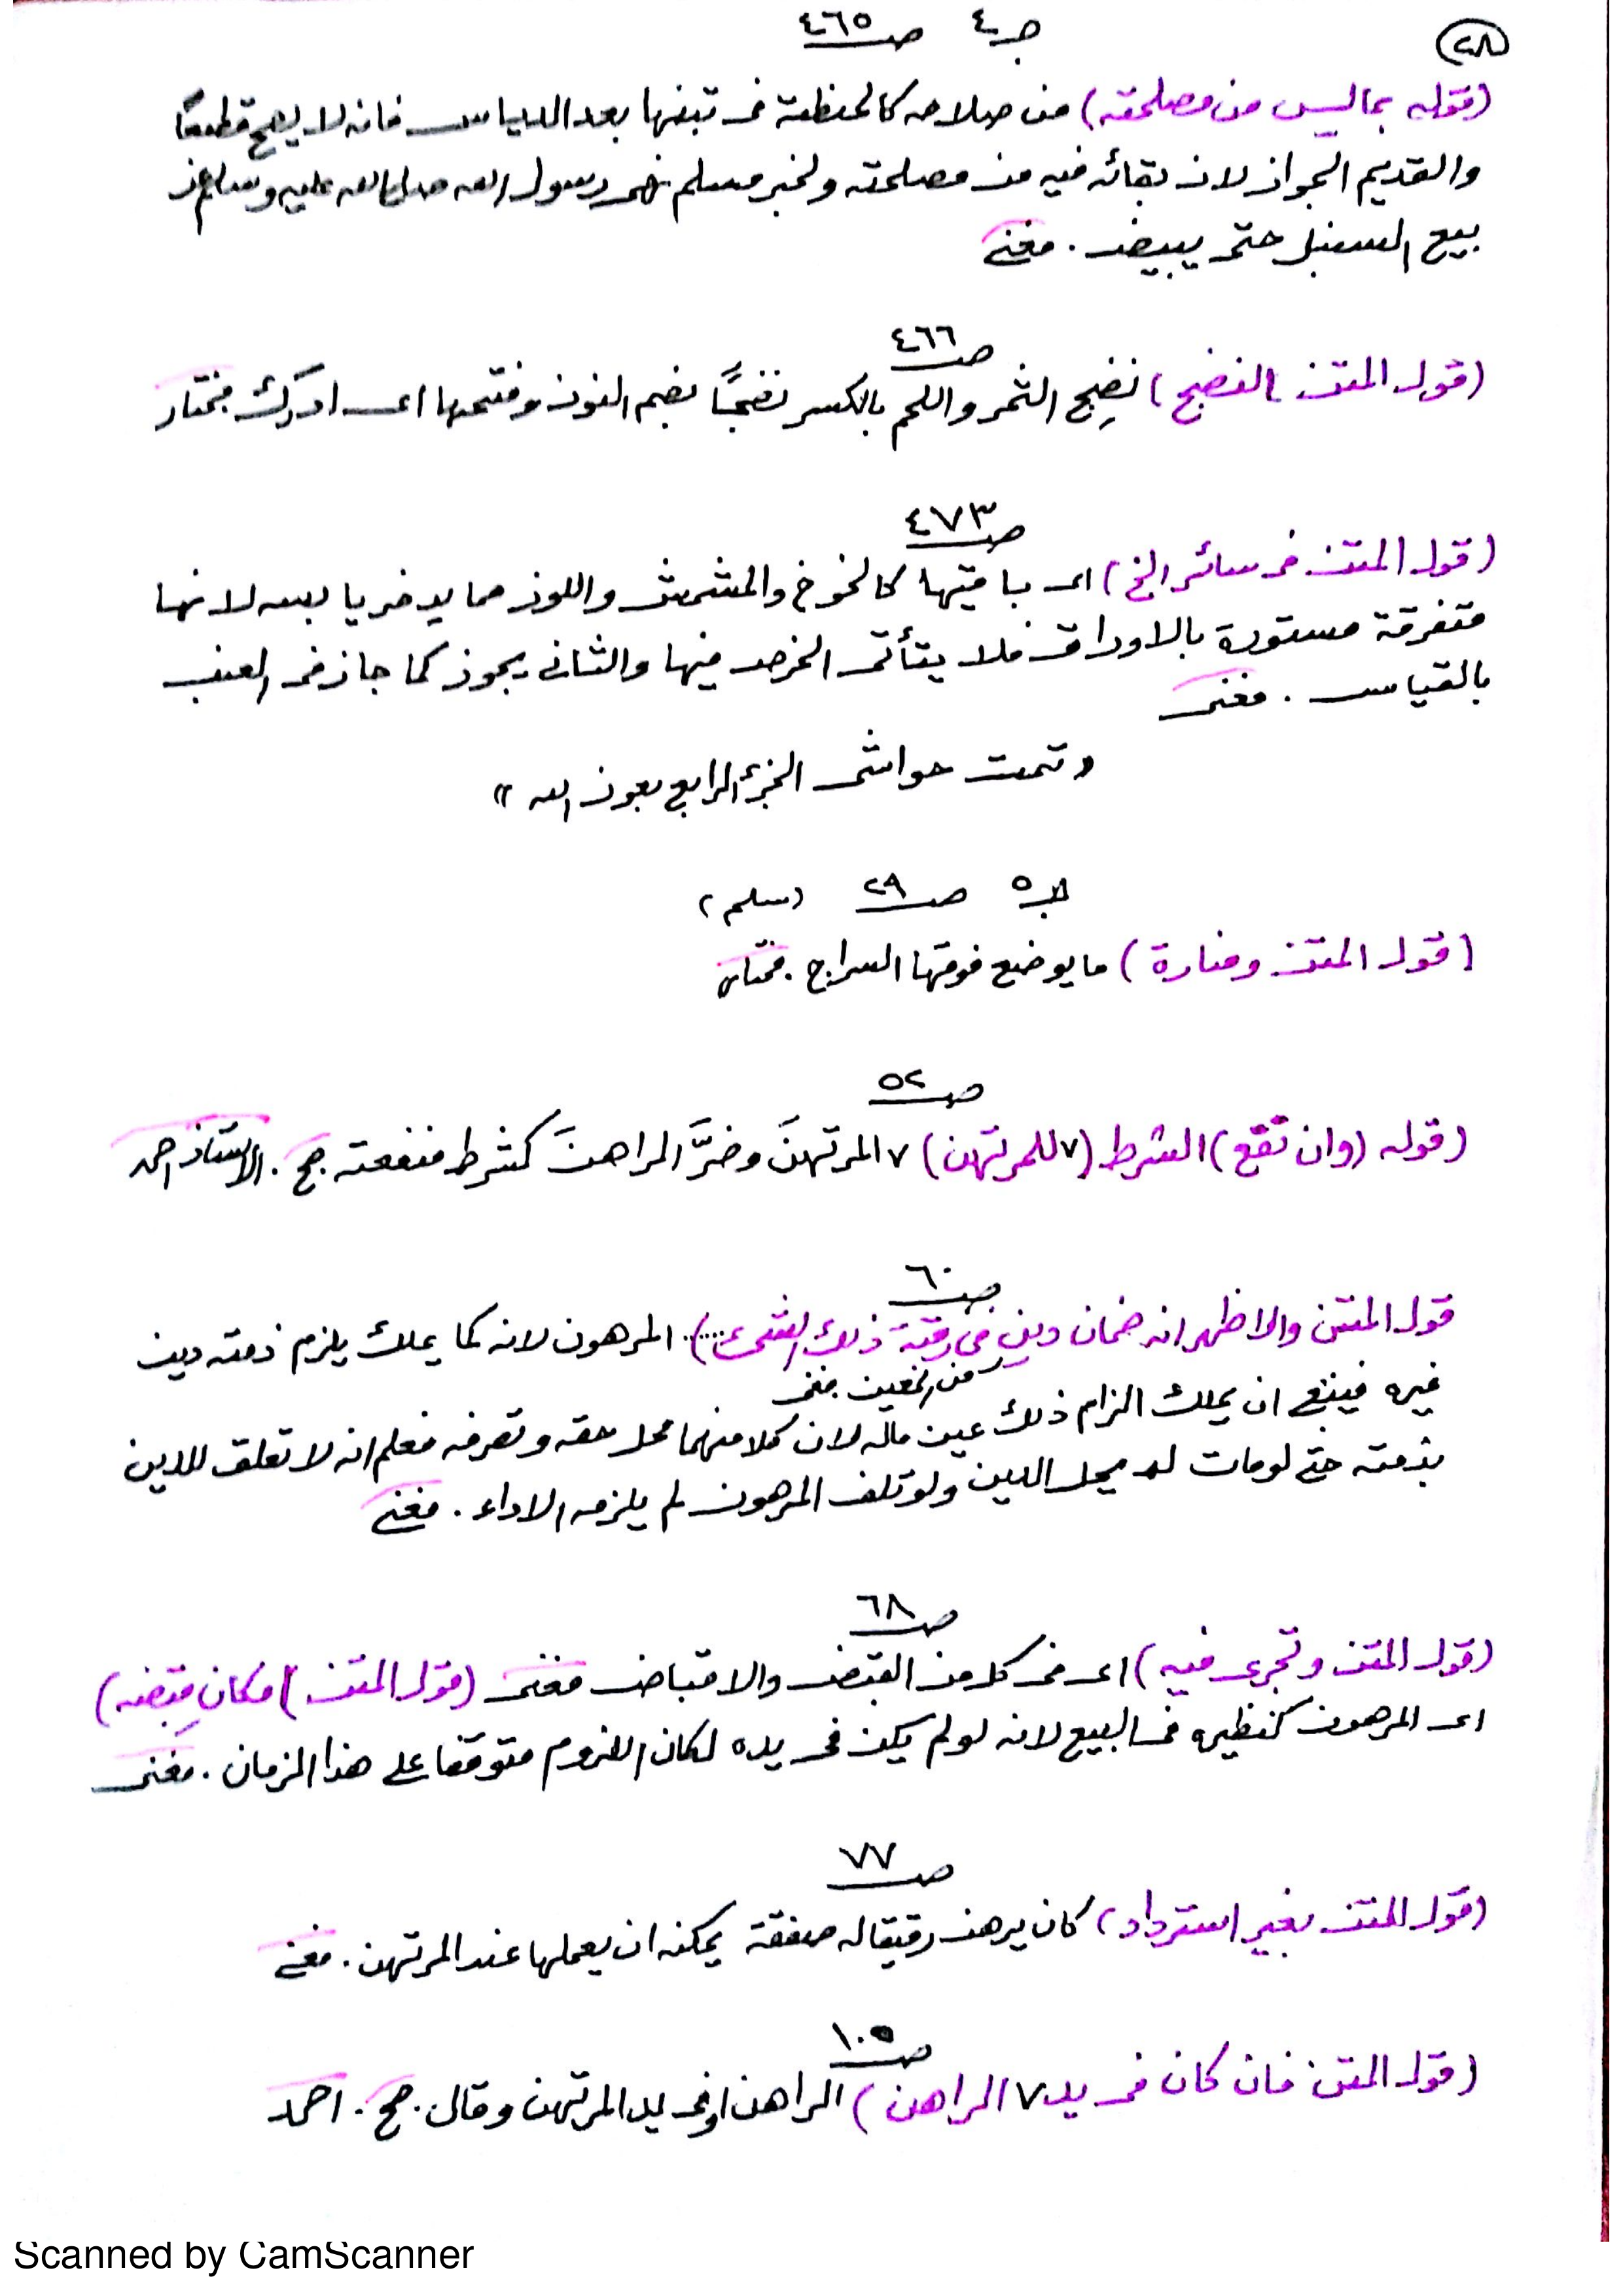 ٢٨
جـ ٤ صـ ٤٦٥
(قوله بما ليس من مصلحته) من صلاحه كالحنطة فى تبنها بعد الدياس فانه لا يصح قطعا
والقديم الجواز لان بقائه فيه من مصلحته ولخبر مسلم نهى رسول الله صلى الله عليه وسلم عن
بيع السنبل حتى يبيض . مغني
صـ ٤٦٦
(قول المتن النضج) نضِج الثمر واللحم بالكسر نضجًا بضم النون وفتحها اى ادرك مختار
صـ ٤٧٣
(قول المتن فى سائر الخ) اى باقيها كالخوخ والمشمش واللوز مما يدخر يابسه لانها
متفرقة مستورة بالاوراق فلا يتأتى الخرص فيها والثانى يجوز كما جاز فى العنب
بالقياس . مغنى
« تمت حواشى الجزء الرابع بعون الله »
جـ ٥ صـ ٢٩ (سلم)
(قول المتن ومنارة) ما يوضع فوقها السراج . مختار
صـ ٥٢
(قوله (وان نفع) الشرط (٧ للمرتهن) ٧ المرتهنَ وضرَّ الراهنَ كشرط منفعته صح . الاستاذ احمد
صـ ٦٠
قول المتن والاظهر انه ضمان دين فى رقبة ذلك الشىء.....) المرهون لانه كما يملك يلزم ذمته دين
من المعين مغنى
غيره فينبغى ان يملك الزام ذلك عين ماله لان كلا منهما محل حقه وتصرفه فعلم انه لا تعلق للدين
بذمته حتى لو مات لم يحل الدين ولو تلف المرهون لم يلزمه الاداء . مغني
صـ ٦٨
(قول المتن وتجرى فيه) اى فى كل من القبض والاقباض مغنى (قول المتن) مكان قبضه)
اى المرهون كنظيره فى البيع لانه لو لم يكن فى يده لكان اللزوم متوقفا على هذا الزمان . مغنى
صـ ٧٧
(قول المتن بغير استرداد) كان يرهن رقيقا له صنعة يمكنه ان يعملها عند المرتهن . مغني
صـ ١٠٥
(قول المتن فان كان فى يد ٧ الراهن) الراهن او فى يد المرتهن وقال . صح . احمد
Scanned by CamScanner